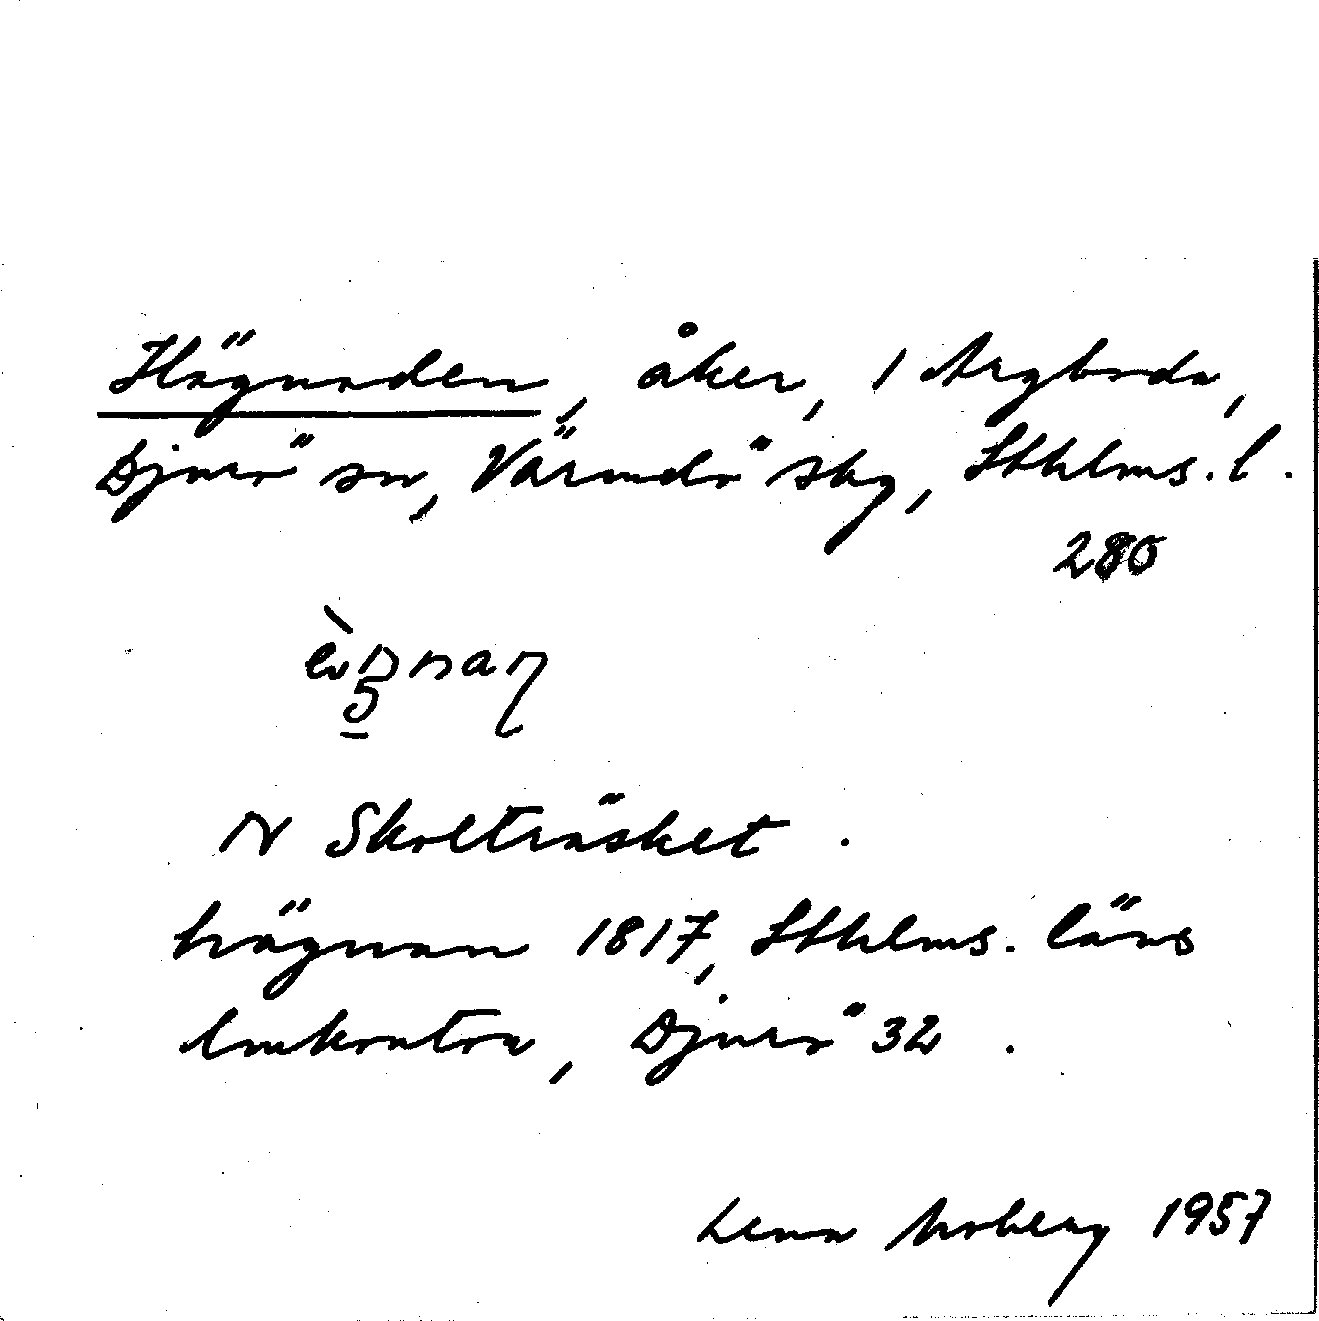 Hägnaden, åker, i Aregboda,
Djurö sn, Värmdö skg, Sthlms. l.
280
N Skolträsket.
hägnan 1817, Sthlms. läns
lmkontor, Djurö 32.
Lena Moberg 1957